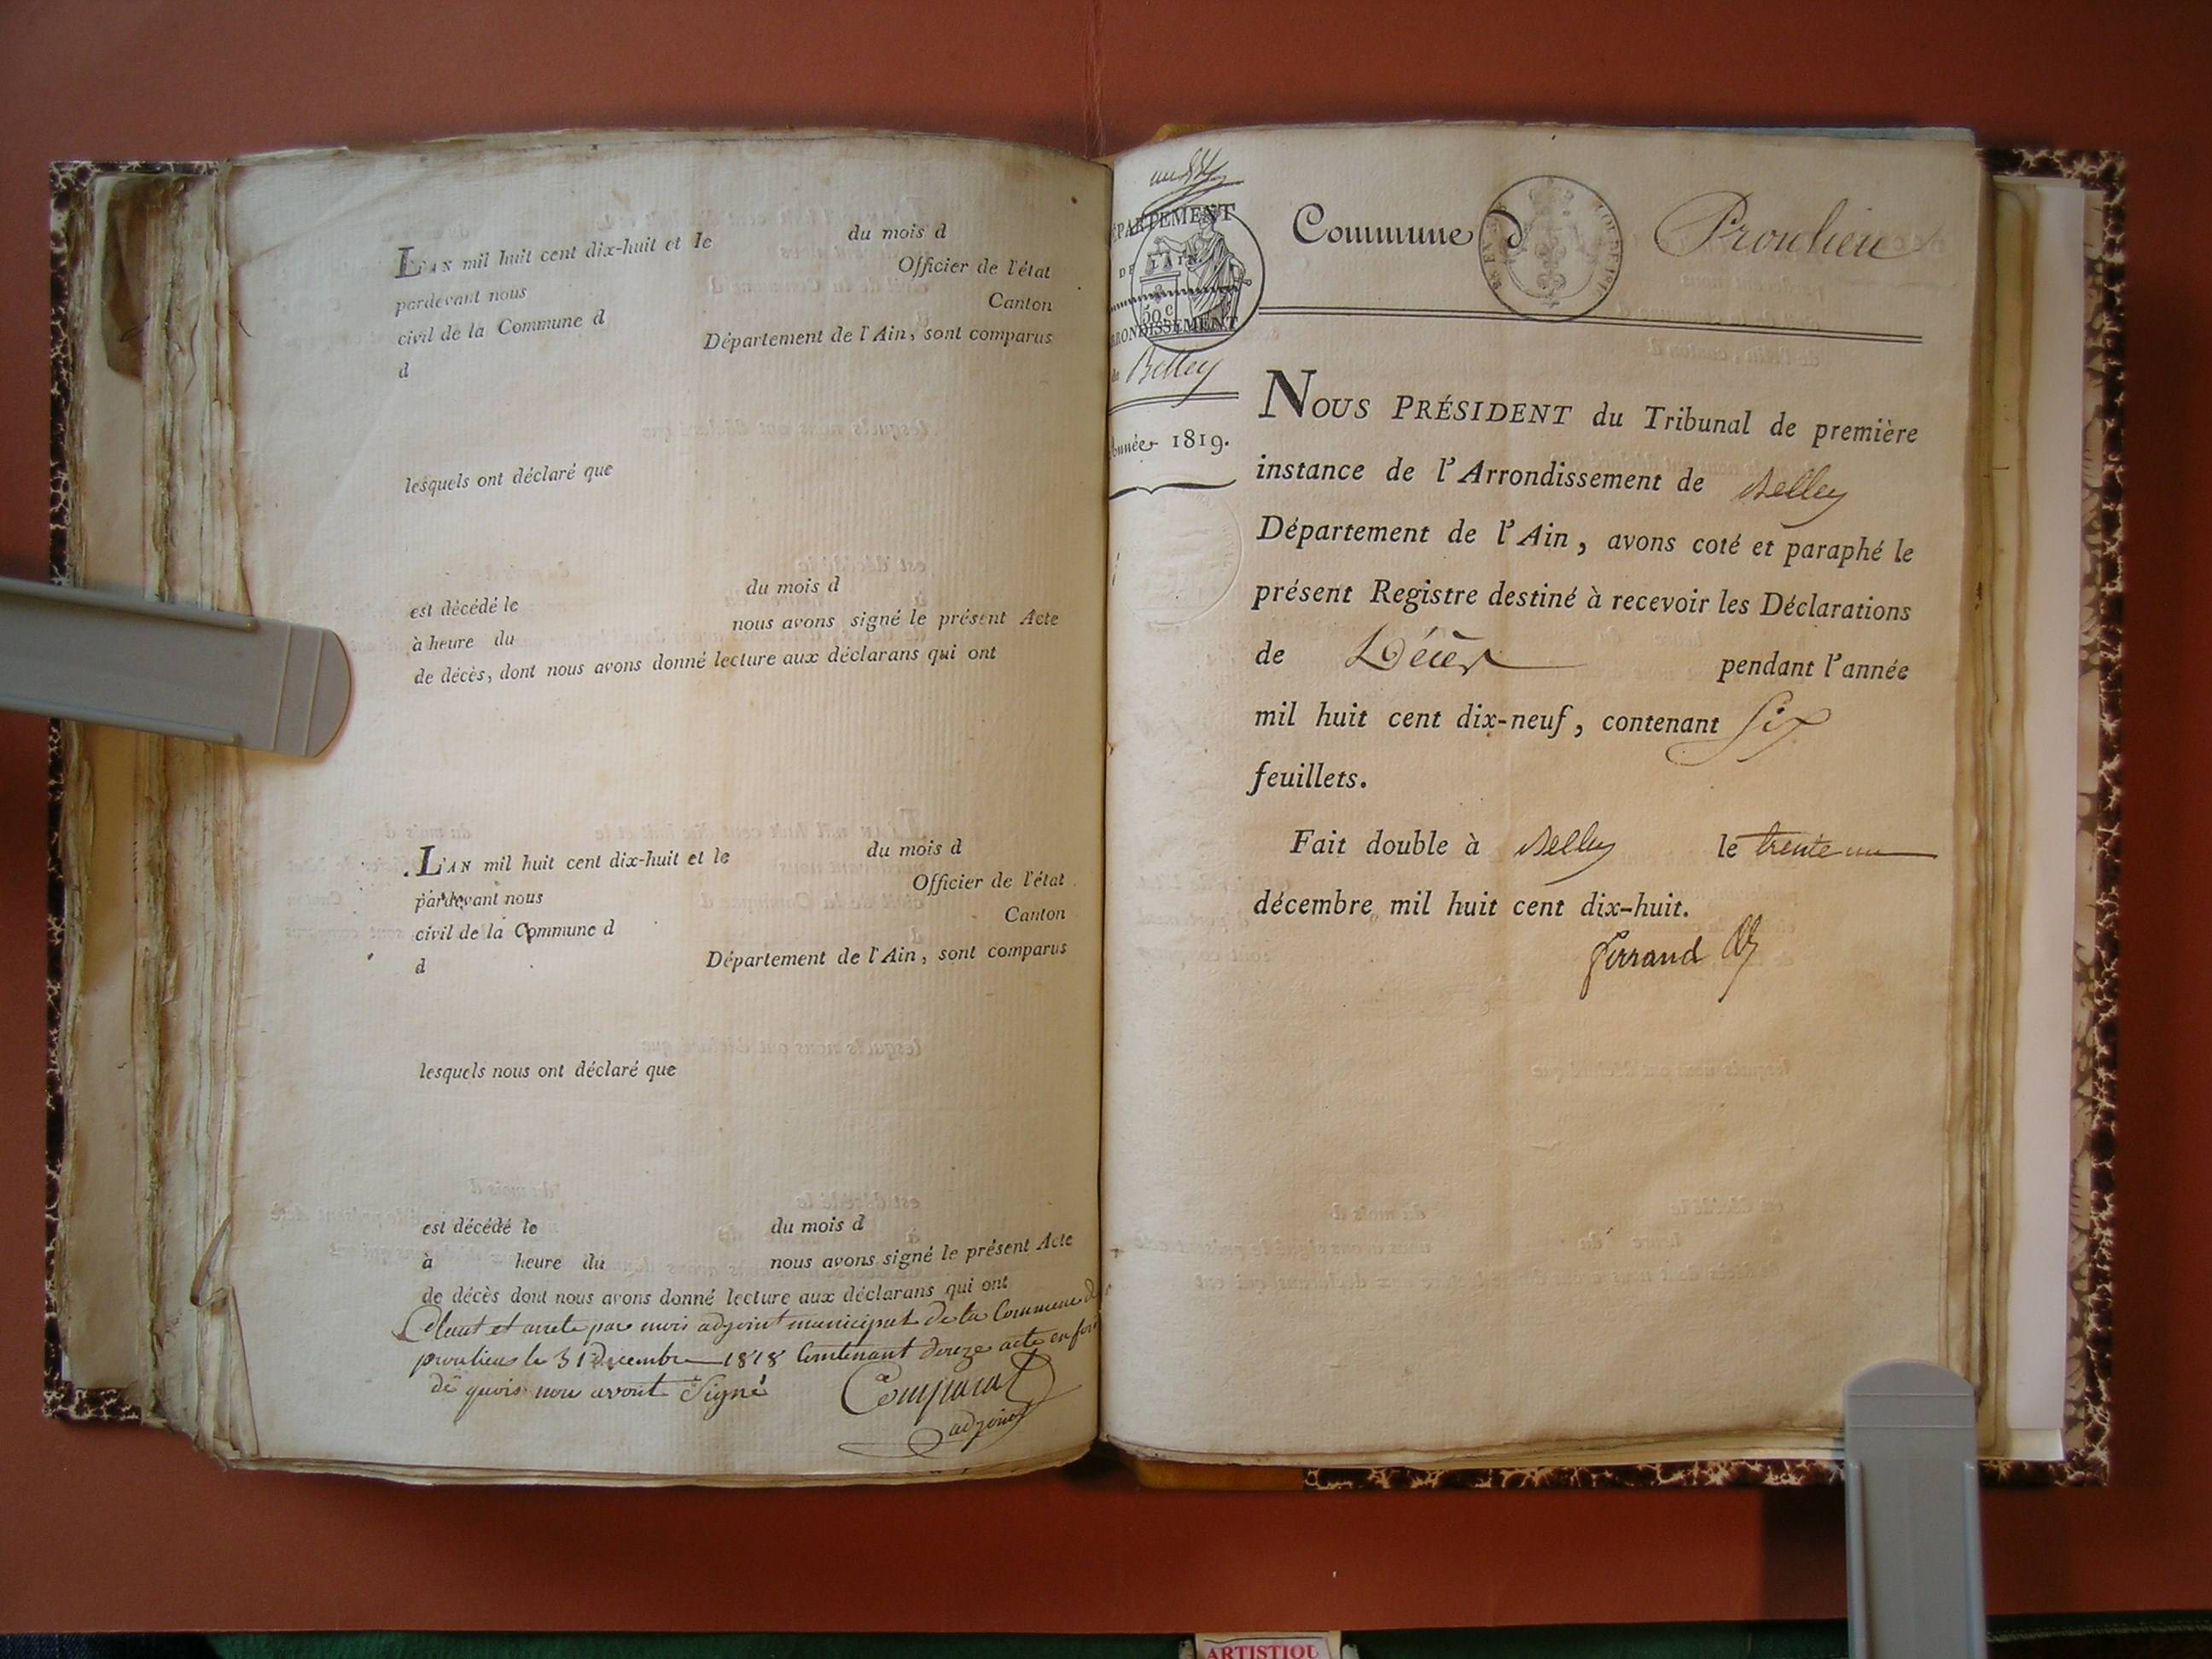 L'AN mil huit cent dix-huit et le du mois d
pardevant nous Officier de l'état
civil de la Commune d Canton
d Département de l'Ain, sont comparus
lesquels ont déclaré que
est décédé le du mois d
à heure du nous avons signé le présent Acte
de décès, dont nous avons donné lecture aux déclarans qui ont
L'AN mil huit cent dix-huit et le du mois d
pardevant nous Officier de l'état
civil de la Commune d Canton
d Département de l'Ain, sont comparus
lesquels nous ont déclaré que
est décédé le du mois d
à heure du nous avons signé le présent Acte
de décès dont nous avons donné lecture aux déclarans qui ont
et arrete par moi adjoint municipal de la Commune de
proulieu le 31 Decembre 1818 Contenant douze acte en foi
de quoi nou avont Signé
Comparat
adjoint
DÉPARTEMENT
DE L'AIN
50 c
ARRONDISSEMENT
de Belley
Année 1819.
Commune d Proulieu
NOUS PRÉSIDENT du Tribunal de première
instance de l'Arrondissement de Belley
Département de l'Ain, avons coté et paraphé le
présent Registre destiné à recevoir les Déclarations
de Décès pendant l'année
mil huit cent dix-neuf, contenant Six
feuillets.
Fait double à Belley le trente un
décembre mil huit cent dix-huit.
ferrand
ARTISTIQU